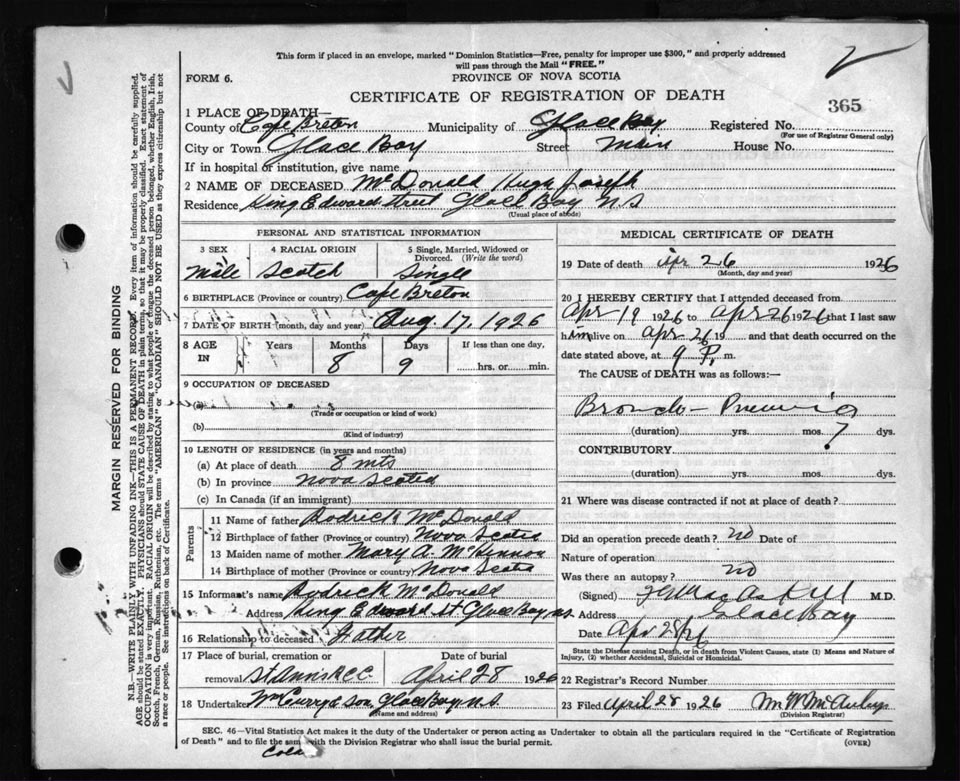 2
This form if placed in an envelope, marked "Dominion Statistics—Free, penalty for improper use $300," and properly addressed
will pass through the Mail "FREE."
FORM 6.
PROVINCE OF NOVA SCOTIA
CERTIFICATE OF REGISTRATION OF DEATH
365
1 PLACE OF DEATH—
County of Cape Breton Municipality of Glace Bay Registered No.
(For use of Registrar General only)
City or Town Glace Bay Street Main House No.
If in hospital or institution, give name
2 NAME OF DECEASED McDonald Hugh Joseph
Residence King Edward Street Glace Bay N S
(Usual place of abode)
PERSONAL AND STATISTICAL INFORMATION
3 SEX 4 RACIAL ORIGIN 5 Single, Married, Widowed or
Divorced. (Write the word)
Male Scotch Single
6 BIRTHPLACE (Province or country) Cape Breton
7 DATE OF BIRTH (month, day and year) Aug 17, 1926
8 AGE IN Years Months Days If less than one day,
8 9 hrs. or min.
9 OCCUPATION OF DECEASED
(a)
(Trade or occupation or kind of work)
(b)
(Kind of industry)
10 LENGTH OF RESIDENCE (in years and months)
(a) At place of death 8 mts
(b) In province Nova Scotia
(c) In Canada (if an immigrant)
Parents
11 Name of father Rodrick McDonald
12 Birthplace of father (Province or country) Nova Scotia
13 Maiden name of mother Mary A. McKinnon
14 Birthplace of mother (Province or country) Nova Scotia
15 Informant's name Rodrick McDonald
Address King Edward St Glace Bay, N.S.
16 Relationship to deceased Father
17 Place of burial, cremation or Date of burial
removal St Anns R C C April 28 1926
18 Undertaker McCurry & Son Glace Bay N.S.
(Name and address)
MEDICAL CERTIFICATE OF DEATH
19 Date of death Apr 26 1926
(Month, day and year)
20 I HEREBY CERTIFY that I attended deceased from
Apr 19 1926 to Apr 26 1926 that I last saw
him alive on Apr 26 19 and that death occurred on the
date stated above, at 9 P. m.
The CAUSE of DEATH was as follows:—
Broncho-Pneumonia
(duration) yrs. mos. 7 dys.
CONTRIBUTORY
(duration) yrs. mos. dys.
21 Where was disease contracted if not at place of death?
Did an operation precede death? no Date of
Nature of operation
Was there an autopsy? no
(Signed) MacAskill M.D.
Address Glace Bay
Date Apr 28/26
State the Disease causing Death, or in death from Violent Causes, state (1) Means and Nature of
Injury, (2) whether Accidental, Suicidal or Homicidal.
22 Registrar's Record Number
23 Filed April 28 1926
(Division Registrar)
SEC. 46—Vital Statistics Act makes it the duty of the Undertaker or person acting as Undertaker to obtain all the particulars required in the "Certificate of Registration
of Death" and to file the same with the Division Registrar who shall issue the burial permit. (OVER)
MARGIN RESERVED FOR BINDING
N.B.—WRITE PLAINLY, WITH UNFADING INK—THIS IS A PERMANENT RECORD. Every item of information should be carefully supplied.
AGE should be stated EXACTLY. PHYSICIANS should STATE CAUSE OF DEATH in plain terms, so that it may be properly classified. Exact statement of
OCCUPATION is very important. RACIAL ORIGIN will be described by stating to what people or tongue the deceased person belonged, whether English, Irish,
Scotch, French, German, Russian, Ruthenian, etc. The terms "AMERICAN" or "CANADIAN" SHOULD NOT BE USED as they express citizenship but not
a race or people. See instructions on back of Certificate.